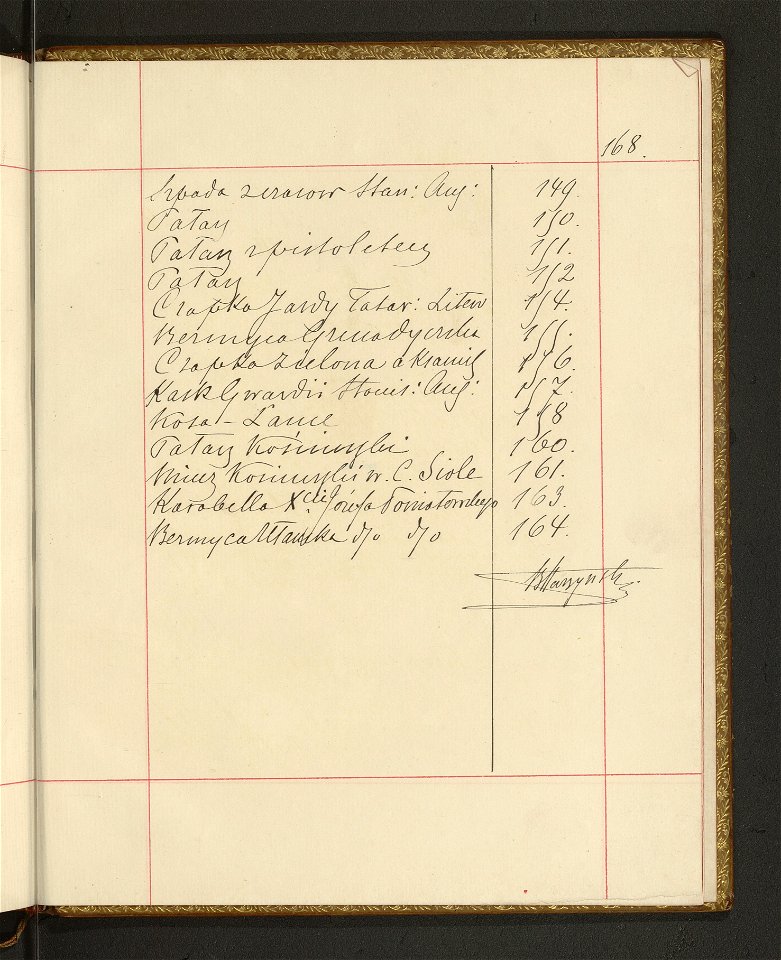 168.
Szpada z czasow Stan: Aug: 149.
Pałasz 150.
Pałasz z pistoletem 151.
Pałasz 152
Czapka Jazdy Tatar: Litew 154.
Bermyca Grenadyerska 155.
Czapka zielona aksamit 156.
Kask Gwardii Stanis: Aug: 157.
Kosa - Lance 158
Pałasz Kościuszki 160.
Kościuszki w. C. Siole 161.
Karabella Xcia Józefa Poniatowskiego 163.
Bermyca Ułańska d/o d/o 164.